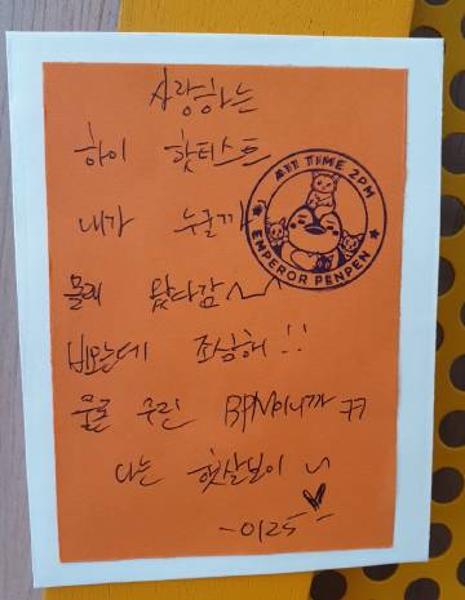 사랑하는
하이 핫티스트
내가 누굴까
몰래 왔다감~
비오는데 조심해!!
물론 우린 2PM이니까 ㅋㅋ
나는 햇살보이~
-0125
ALL TIME 2PM
EMPEROR PENPEN